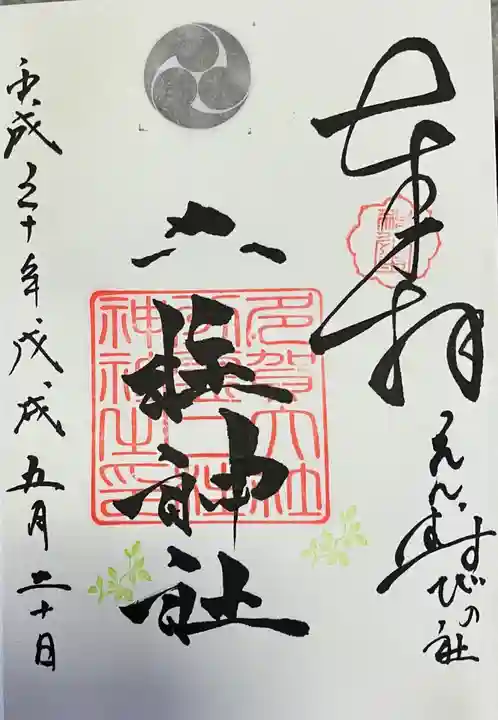 奉拝
えんむすびの社
神社
多賀大社
神社之印
平成三十年、戊、戌 五月二十日